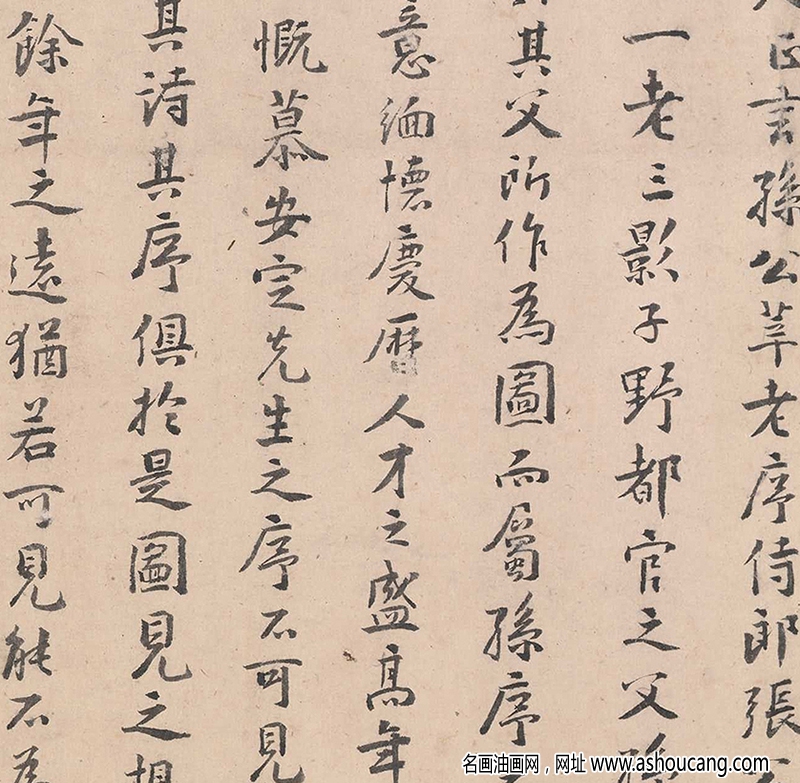 正言孫公莘老序侍郎張
一老三影子野都官之父
其父所作為圖而屬孫序
意緬懷慶曆人才之盛高年
慨慕安定先生之序不可見
其詩其序俱於是圖見之
餘年之遠猶若可見能不為
名画油画网，网址 www.ashoucang.com